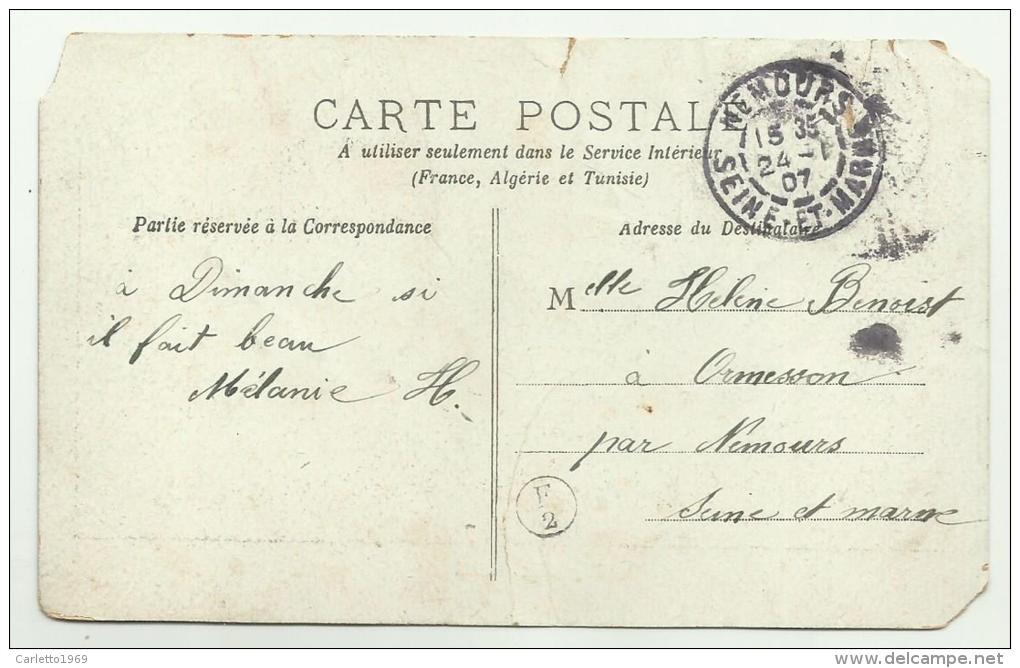 CARTE POSTALE
À utiliser seulement dans le Service Intérieur
(France, Algérie et Tunisie)
NEMOURS
15 35
24 - 1
07
SEINE-ET-MARNE
Partie réservée à la Correspondance
à Dimanche si
il fait beau
Mélanie H.
Adresse du Destinataire
Melle Hélène Benoist
à Ormesson
par Némours
Seine et marne
F
2
Carletto1969
www.delcampe.net